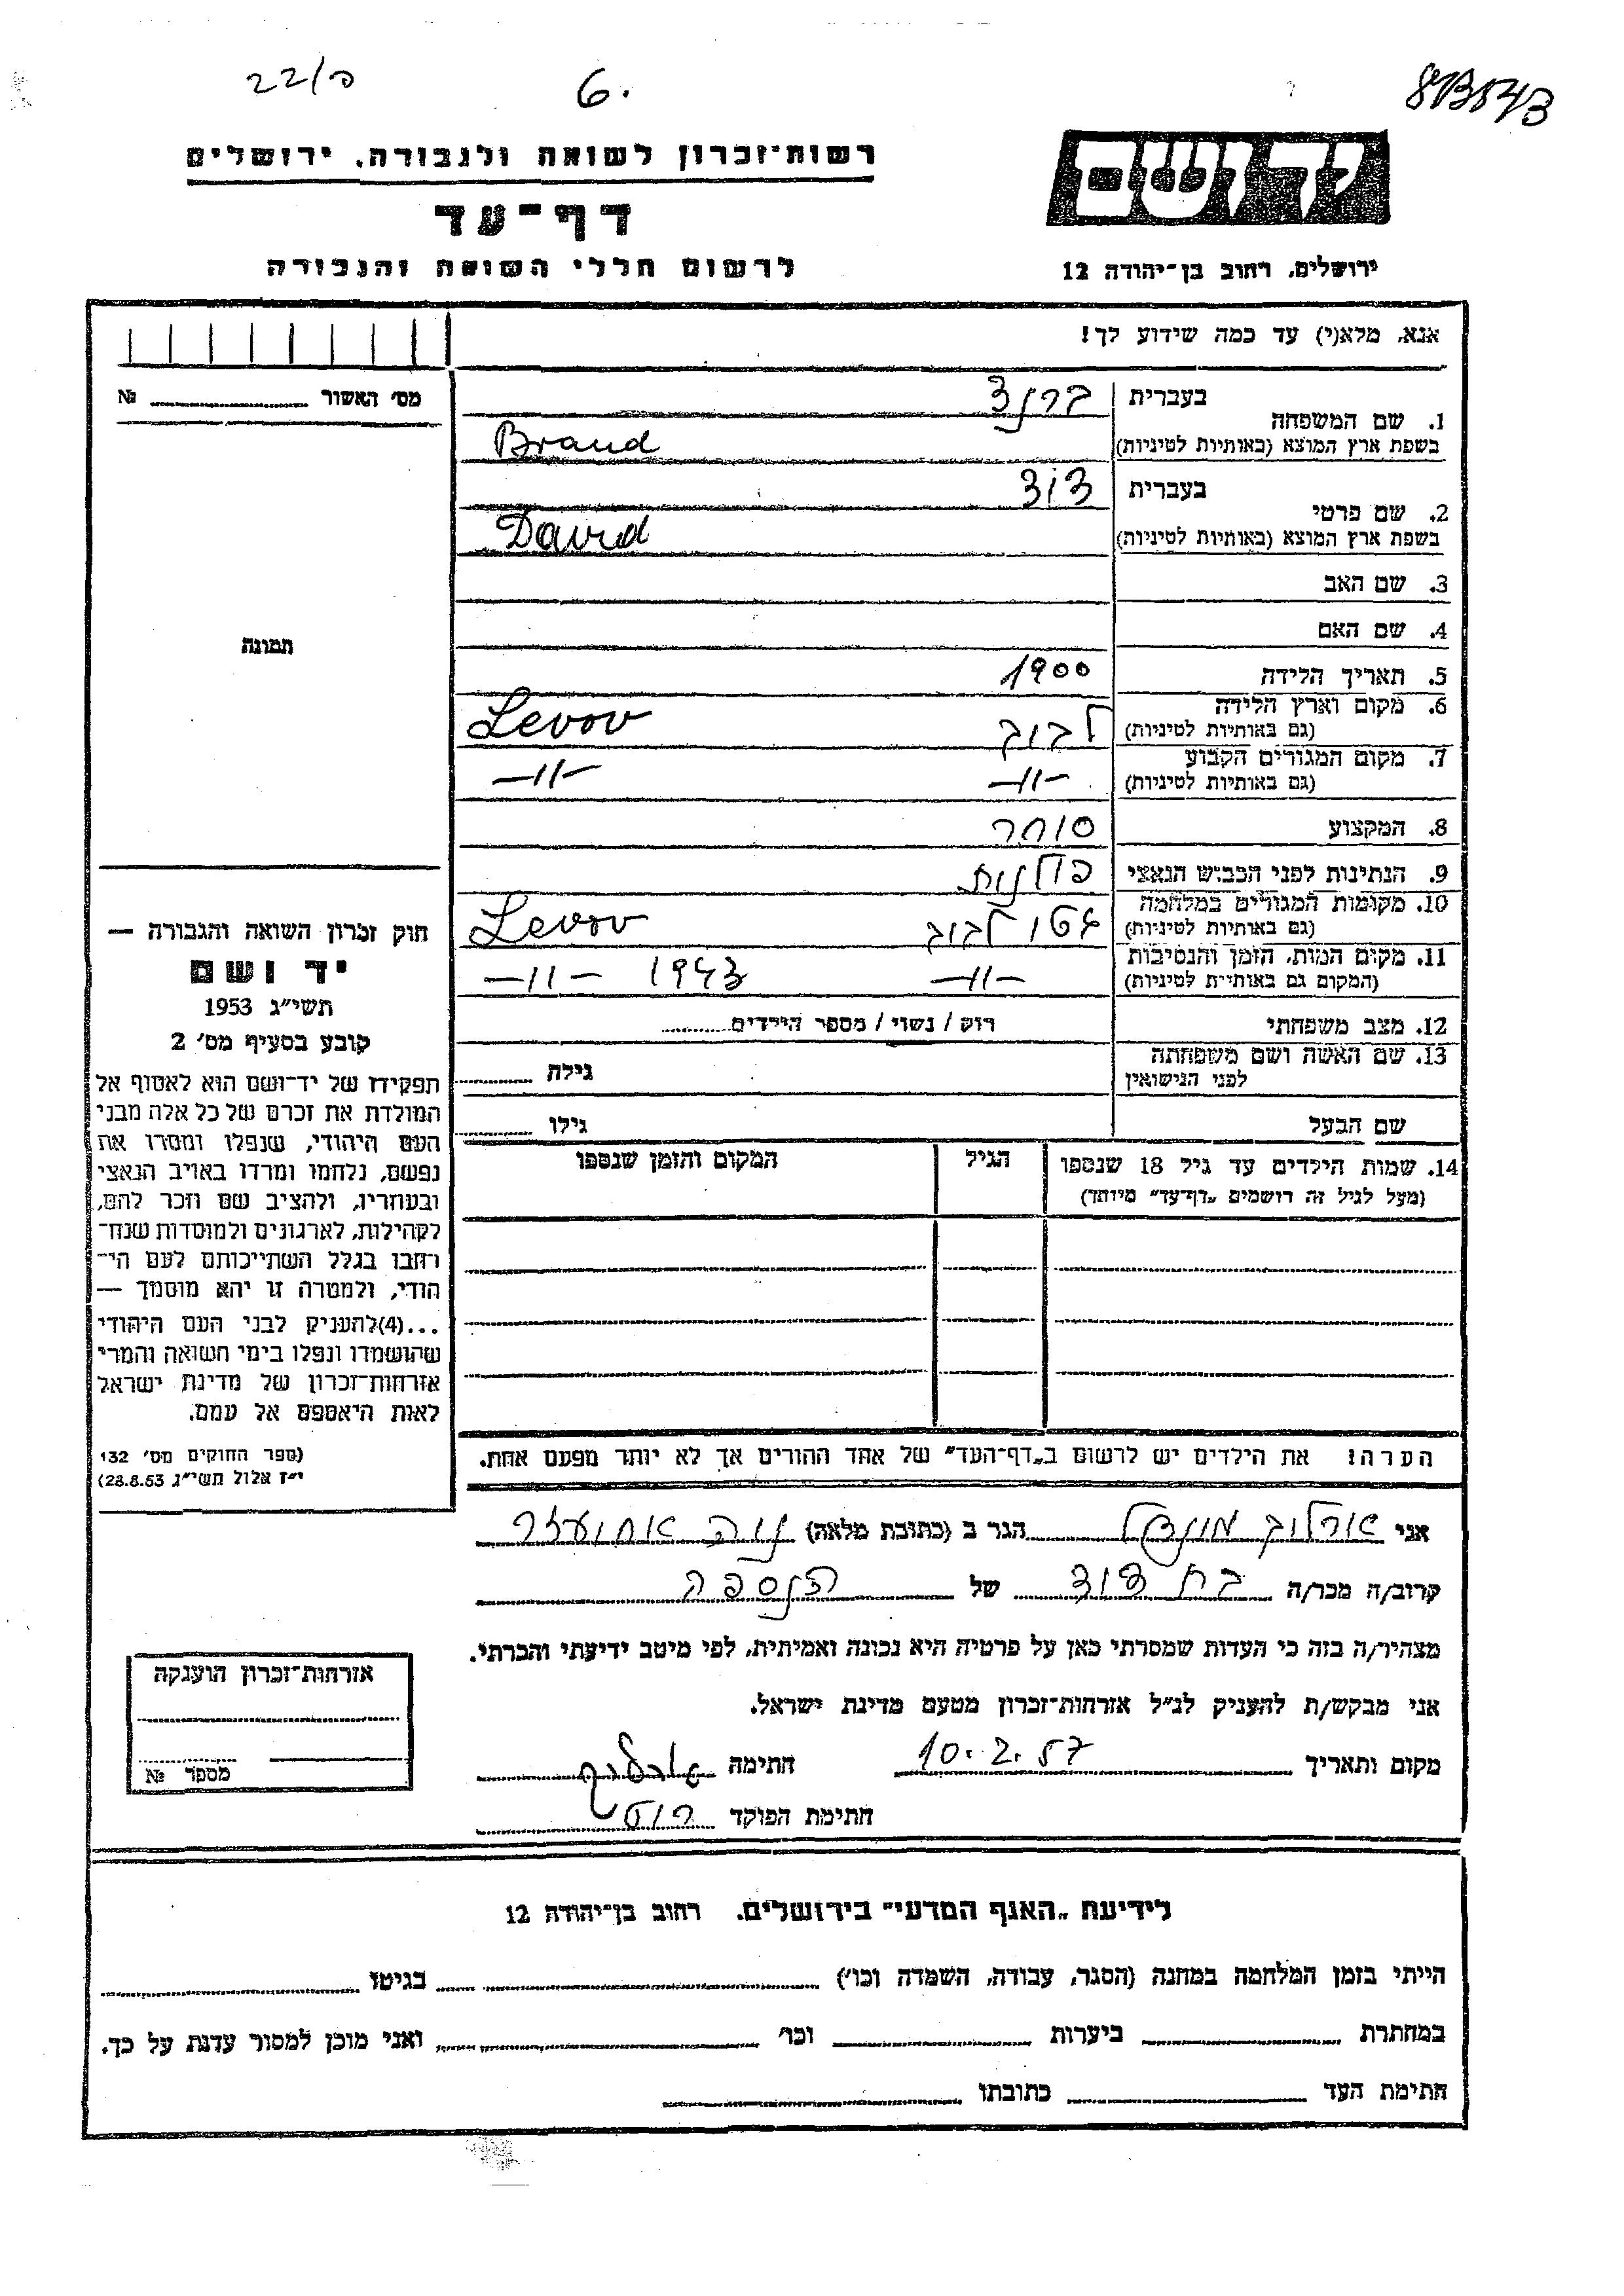 22/פ 6.
רשות־זכרון לשואה ולגבורה, ירושלים
יד ושם
דף־עד
לרשום חללי השואה והגבורה
ירושלים, רחוב בן־יהודה 12
אנא, מלא(י) עד כמה שידוע לך!
מס׳ האשור № 
1. שם המשפחה בעברית ברנד
בשפת ארץ המוצא (באותיות לטיניות) Brand
2. שם פרטי בעברית דוד
בשפת ארץ המוצא (באותיות לטיניות) David
3. שם האב
4. שם האם
תמונה
5. תאריך הלידה 1900
6. מקום וארץ הלידה לבוב Levov
(גם באותיות לטיניות)
7. מקום המגורים הקבוע —11— —11—
(גם באותיות לטיניות)
8. המקצוע סוחר
9. הנתינות לפני הכבוש הנאצי פולנית
10. מקומות המגורים במלחמה גטו לבוב Levov
(גם באותיות לטיניות)
11. מקום המות, הזמן והנסיבות —11— 1943 —11—
(המקום גם באותיות לטיניות)
12. מצב משפחתי רוק / נשוי / מספר הילדים
13. שם האשה ושם משפחתה
לפני הנישואין גילה
שם הבעל גילו
14. שמות הילדים עד גיל 18 שנספו הגיל המקום והזמן שנספו
(מעל לגיל זה רושמים „דף־עד" מיוחד)
הערה: את הילדים יש לרשום ב„דף־העד" של אחד ההורים אך לא יותר מפעם אחת.
חוק זכרון השואה והגבורה —
יד ושם
תשי״ג 1953
קובע בסעיף מס׳ 2
תפקידו של יד־ושם הוא לאסוף אל
המולדת את זכרם של כל אלה מבני
העם היהודי, שנפלו ומסרו את
נפשם, נלחמו ומרדו באויב הנאצי
ובעוזריו, ולהציב שם וזכר להם,
לקהילות, לארגונים ולמוסדות שנח־
רחבו בגלל השתייכותם לעם הי־
הודי, ולמטרה זו יהא מוסמך —
...(4)להעניק לבני העם היהודי
שהושמדו ונפלו בימי השואה והמרי
אזרחות־זכרון של מדינת ישראל
לאות היאספם אל עמם.
(ספר החוקים מס׳ 132
י״ז אלול תשי״ג 28.8.53)
אני אורלוב מונדל הגר ב (כתובת מלאה) נוה אחיעזר
קרוב/ה מכר/ה בת דוד של הנספה
מצהיר/ה בזה כי העדות שמסרתי כאן על פרטיה היא נכונה ואמיתית, לפי מיטב ידיעתי והכרתי.
אני מבקש/ת להעניק לנ״ל אזרחות־זכרון מטעם מדינת ישראל.
מקום ותאריך 10.2.57 חתימה
חתימת הפוקד
אזרחות־זכרון הוענקה
מספר №
לידיעת „האגף המדעי" בירושלים. רחוב בן־יהודה 12
הייתי בזמן המלחמה במחנה (הסגר, עבודה, השמדה וכו׳) בגיטו
במחתרת ביערות וכו׳ ואני מוכן למסור עדות על כך.
חתימת העד כתובתו